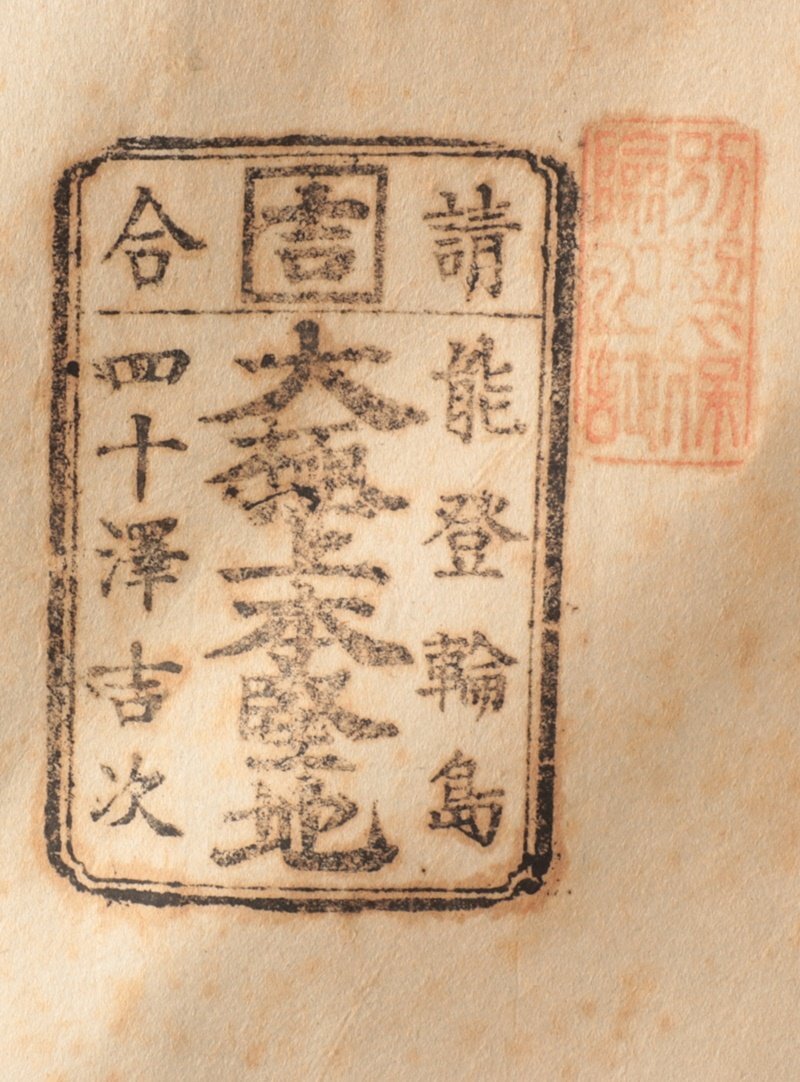 請 吉 合
能登輪島
大極上本堅地
四十澤吉次